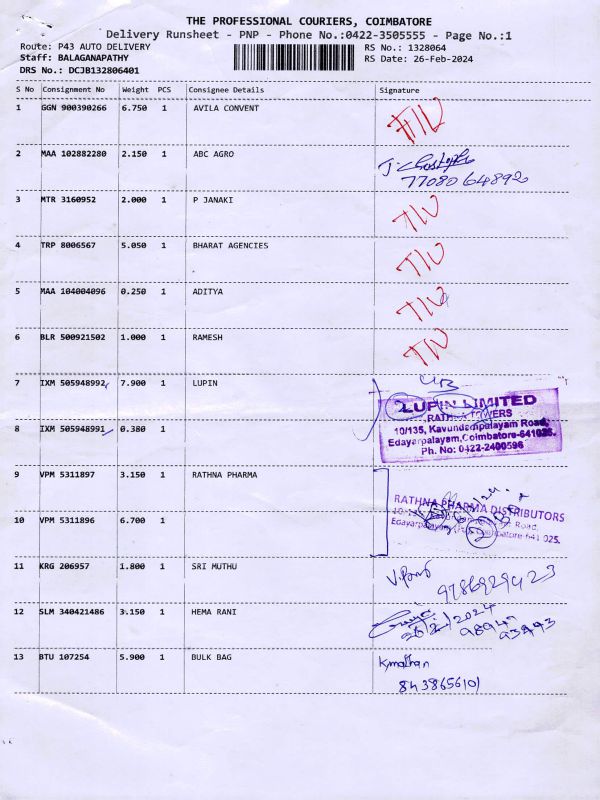 THE PROFESSIONAL COURIERS, COIMBATORE
Delivery Runsheet - PNP - Phone No.:0422-3505555 - Page No.:1
Route: P43 AUTO DELIVERY RS No.: 1328064
Staff: BALAGANAPATHY RS Date: 26-Feb-2024
DRS No.: DCJB132806401
S No Consignment No Weight PCS Consignee Details Signature
1 GGN 900390266 6.750 1 AVILA CONVENT
2 MAA 102882280 2.150 1 ABC AGRO
7708064892
3 MTR 3160952 2.000 1 P JANAKI
4 TRP 8006567 5.050 1 BHARAT AGENCIES
5 MAA 104004096 0.250 1 ADITYA
6 BLR 500921502 1.000 1 RAMESH
7 IXM 505948992 7.900 1 LUPIN
LUPIN LIMITED
RATHNA TOWERS
10/135, Kavundampalayam Road,
Edayarpalayam, Coimbatore-641025.
Ph. No: 0422-2400596
8 IXM 505948991 0.380 1
9 VPM 5311897 3.150 1 RATHNA PHARMA
RATHNA PHARMA DISTRIBUTORS
Road,
Edayarpalayam Coimbatore 641 025.
10 VPM 5311896 6.700 1
11 KRG 206957 1.800 1 SRI MUTHU
9786929423
12 SLM 340421486 3.150 1 HEMA RANI
26/2/2024
13 BTU 107254 5.900 1 BULK BAG
8438656101